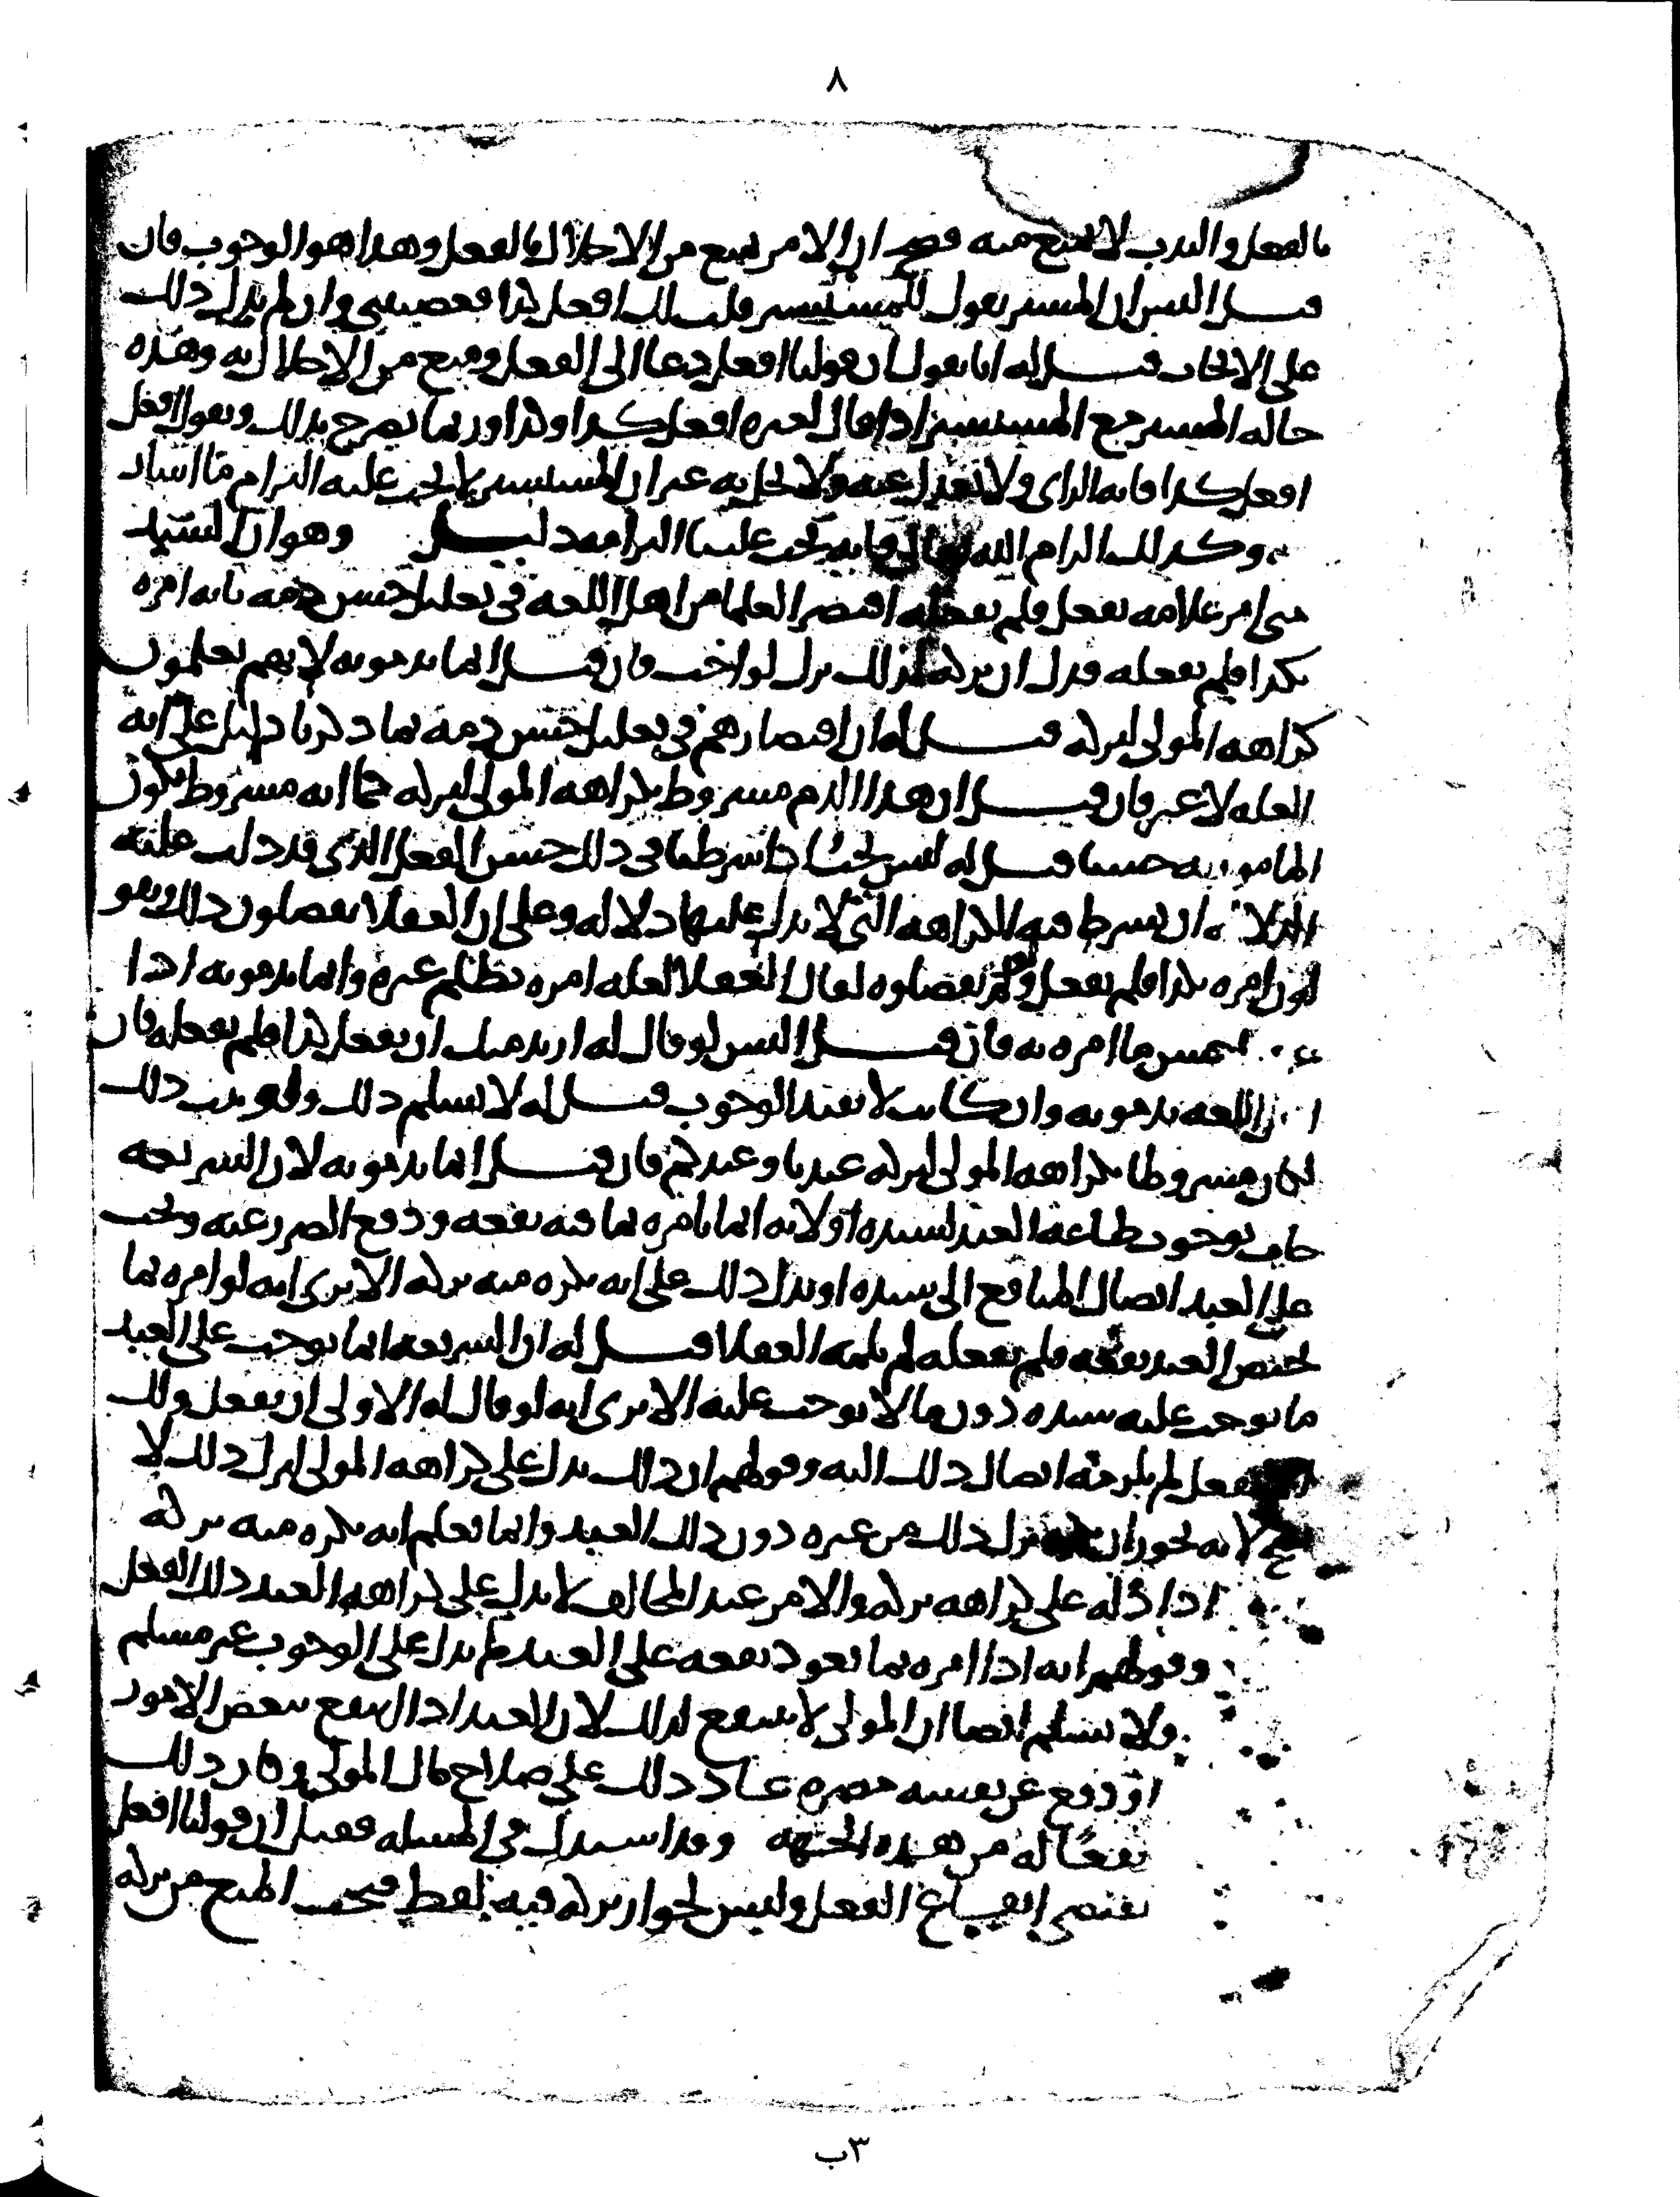 ٨
بالفعل والندب لا يمنع منه فصح ان الامر يمنع من الاخلال بالفعل وهذا هو الوجوب فان
قيل اليس ان المشير يقول للمستشير قلت لك افعل كذا فعصيتني وان لم يدل ذلك
على الايجاب قيل له انا نقول ان قولنا افعل دعا الى الفعل ومنع من الاخلال به وهذه
حاله المشير مع المستشير اذا قال لغيره افعل كذا وكذا وربما يصرح بذلك ويقول افعل
افعل كذا فانه الراى ولا تعدل عنه ولا تخل به غير ان المستشير لا يجب عليه التزام ما اشار
به وكذلك الزام الله تعالى فانه يجب علينا التزامه دليل وهو ان السيد
متى امر غلامه بفعل فلم يفعله اقتصر العقلا من اهل اللغه فى تعليل حسن ذمه بانه امره
بكذا فلم يفعله فدل ان تركه لذلك ترك لواجب فان قيل انما يذمونه لانهم يعلمون
كراهه المولى لتركه قيل له ان اقتصارهم فى تعليل حسن ذمه بما ذكرنا دليل على انه
العله لا غير فان قيل ان هذا الذم مشروط بكراهه المولى لتركه كما انه مشروط بكون
المامور به حسنا قيل له ليس يجب اذا شرطنا فى ذلك حسن الفعل الذى قد دلت عليه
الدلاله ان نشرط فيه الكراهه التى لا يدل عليها دلاله وعلى ان العقلا يفصلون ذلك وهو
كون امره بكذا فلم يفعل ولو لم يفصلوه لقال العقلا لعله امره بظلم غيره وانما يذمونه اذا
حسن ما امره به فان قيل اليس لو قال له اريد منك ان تفعل كذا فلم يفعله فان
اهل اللغه يذمونه وان كانت لا تفيد الوجوب قيل له لا نسلم ذلك ولو ثبت ذلك
لكان مشروطا بكراهه المولى لتركه عندنا وعندكم فان قيل انما يذمونه لان الشريعه
جات بوجوب طاعه العبد لسيده او لانه انما يامره بما فيه نفعه ودفع الضرر عنه ويجب
على العبد ايصال المنافع الى سيده او يدل ذلك على انه يكره منه تركه الا ترى انه لو امره بما
يختص العبد نفعه فلم يفعله لم يلمه العقلا قيل له ان الشريعه انما توجب على العبد
ما يوجب عليه سيده دون ما لا يوجب عليه الا ترى انه لو قال له الاولى ان تفعل ولك
ان لا تفعل لم يلزمه ايصال ذلك اليه وقولهم ان ذلك يدل على كراهه المولى لترك ذلك لا
يصح لانه يجوز ان يكره ترك ذلك من غيره دون ذلك العبد وانما يعلم انه يكره منه تركه
اذا دله على كراهه تركه والامر عند المخالف لا يدل على كراهه العبد ذلك الفعل
وقولهم انه اذا امره بما يعود نفعه على العبد لم يدل على الوجوب غير مسلم
ولا نسلم ايضا ان المولى لا ينتفع لذلك لان العبد اذا انتفع ببعض الامور
او دفع عن نفسه مضره عاد ذلك على صلاح مال المولى وكان ذلك
نفعًا له من هذه الجهه وقد استدل فى المسله فقيل ان قولنا افعل
يقتضى ايقاع الفعل وليس لجواز تركه فيه لفظ فيجب المنع من تركه
٣ب